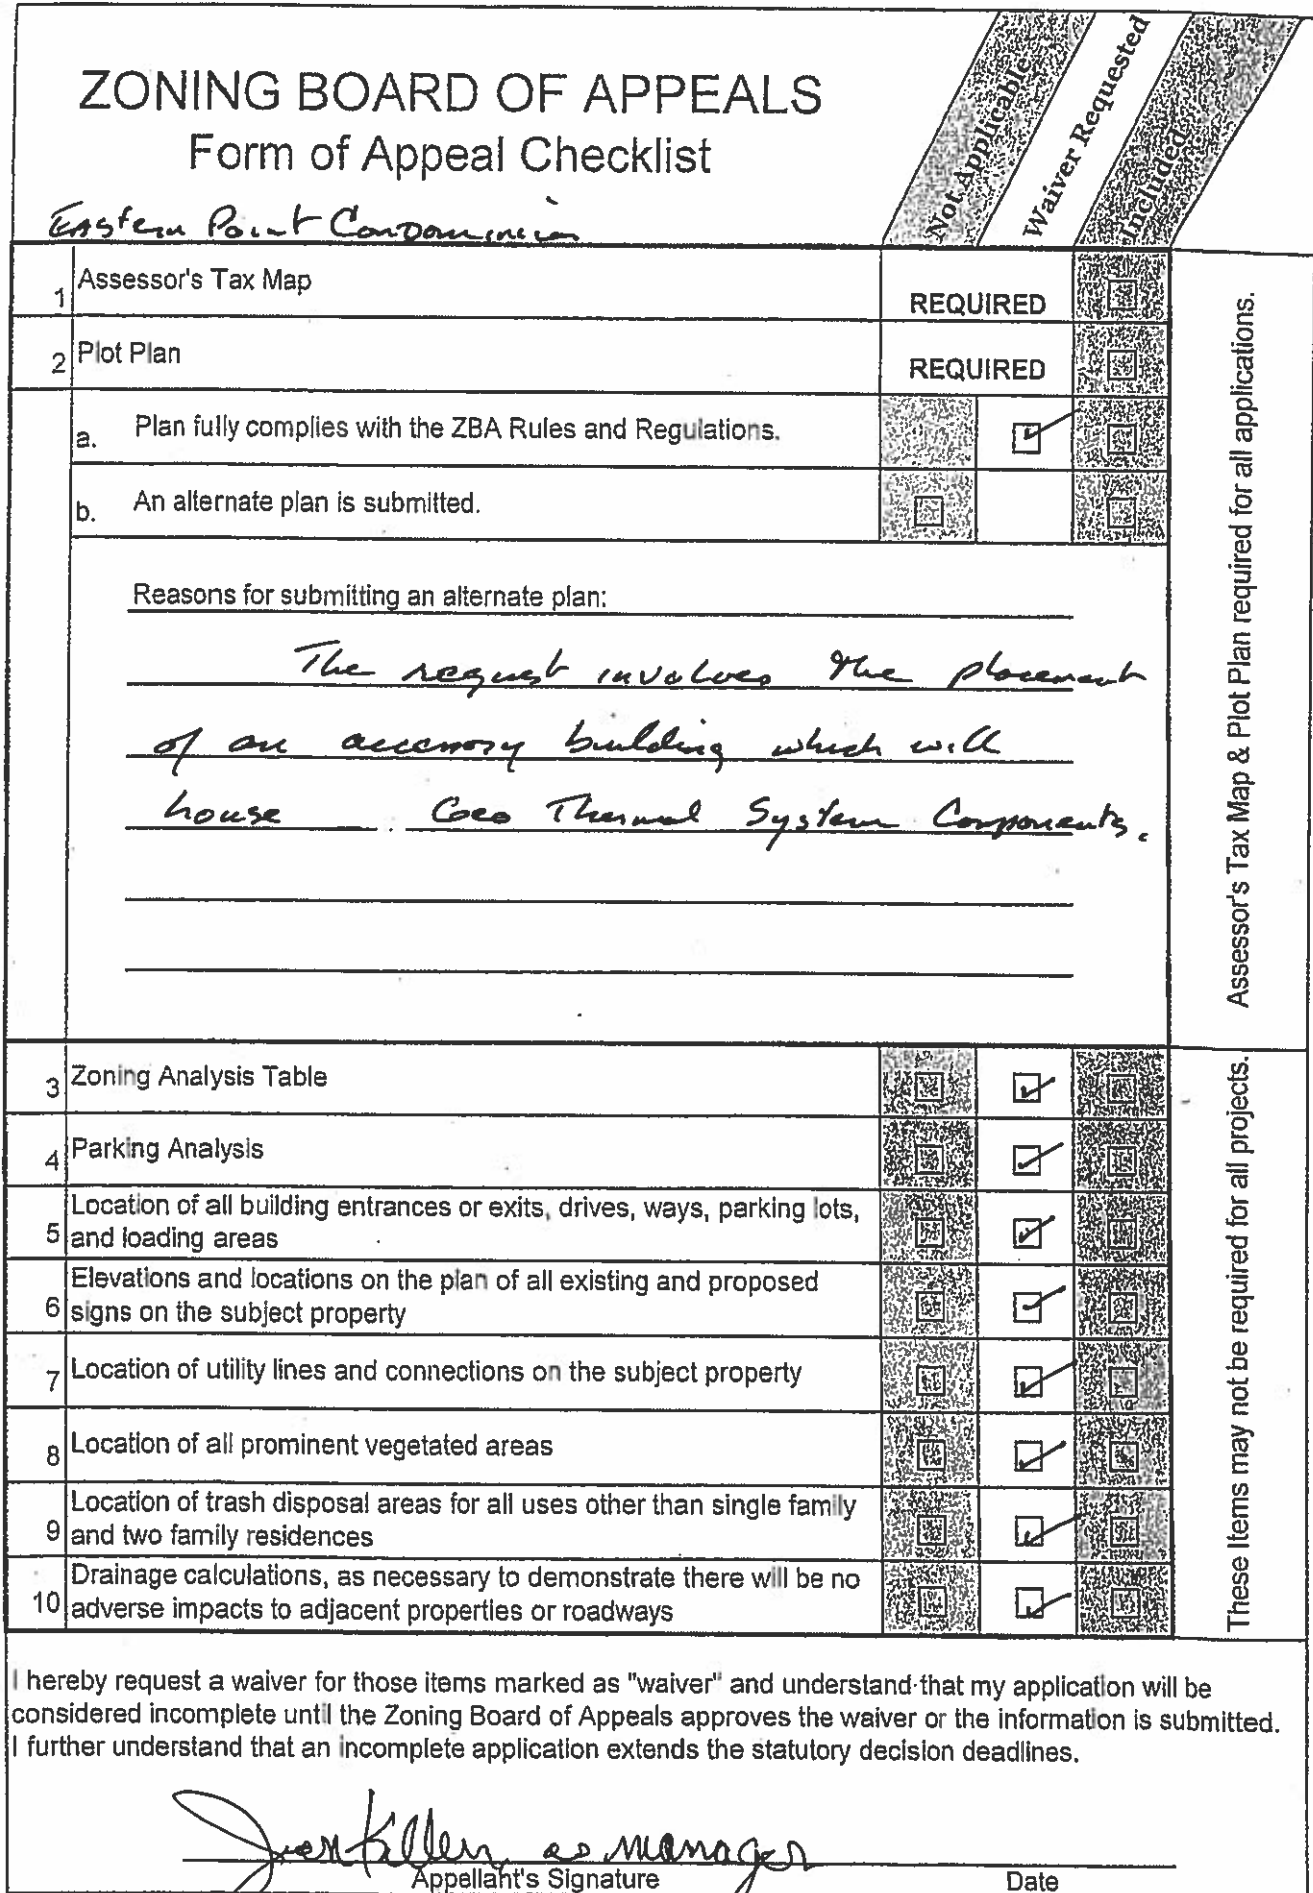 ZONING BOARD OF APPEALS
Form of Appeal Checklist
Eastern Point Condominium
Not Applicable
Waiver Requested
Included
1 Assessor's Tax Map REQUIRED
2 Plot Plan REQUIRED
a. Plan fully complies with the ZBA Rules and Regulations.
b. An alternate plan is submitted.
Reasons for submitting an alternate plan:
The request involves the placement
of an accessory building which will
house Geo Thermal System Components.
Assessor's Tax Map & Plot Plan required for all applications.
3 Zoning Analysis Table
4 Parking Analysis
Location of all building entrances or exits, drives, ways, parking lots,
5 and loading areas
Elevations and locations on the plan of all existing and proposed
6 signs on the subject property
7 Location of utility lines and connections on the subject property
8 Location of all prominent vegetated areas
Location of trash disposal areas for all uses other than single family
9 and two family residences
Drainage calculations, as necessary to demonstrate there will be no
10 adverse impacts to adjacent properties or roadways
These Items may not be required for all projects.
I hereby request a waiver for those items marked as "waiver" and understand that my application will be
considered incomplete until the Zoning Board of Appeals approves the waiver or the information is submitted.
I further understand that an incomplete application extends the statutory decision deadlines.
Killen, as manager
Appellant's Signature Date